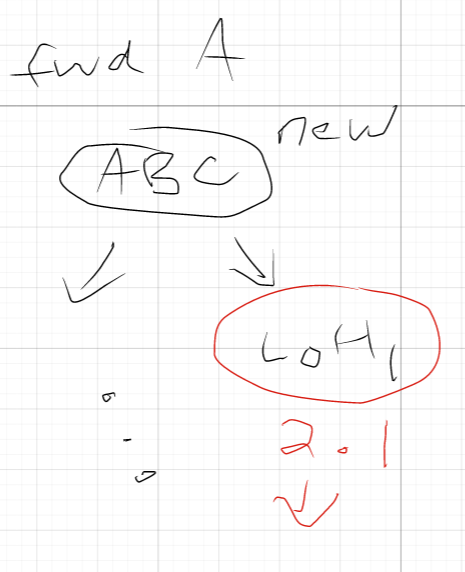 fwd A
new
ABC
LOH1
2.1